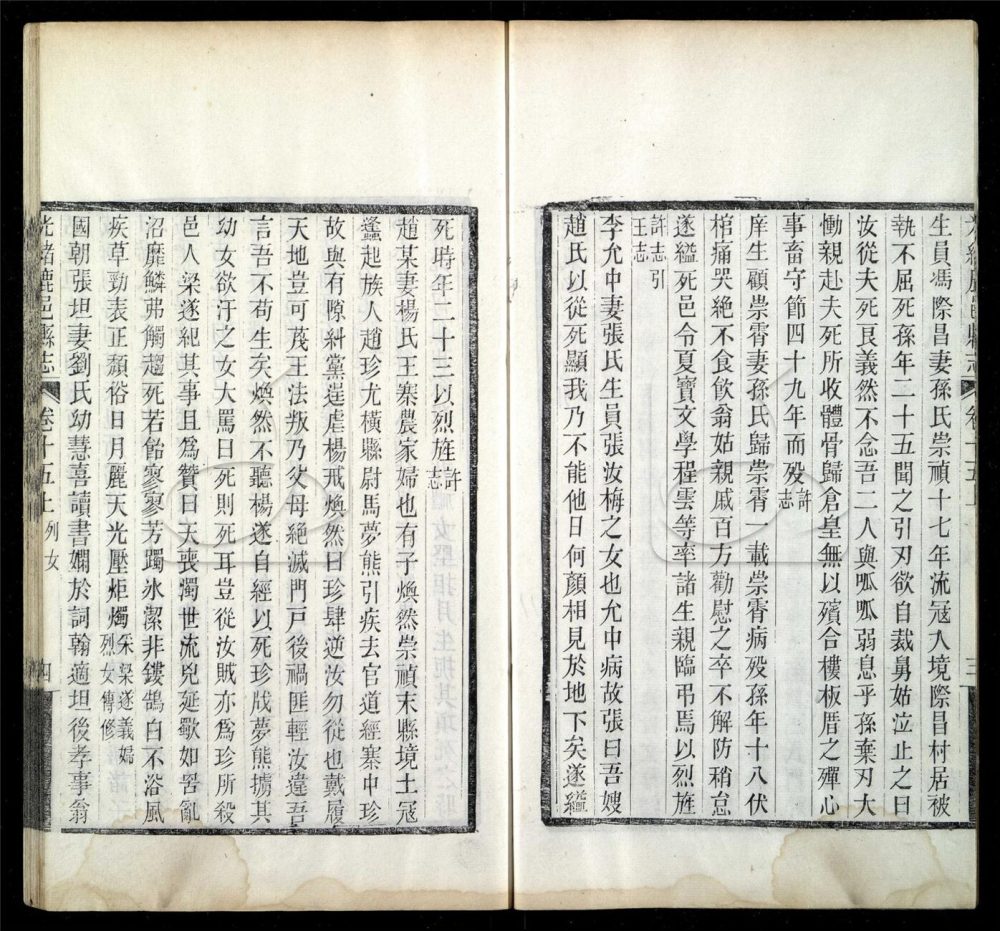 光緒鹿邑縣志 卷十五上 三
生員馮際昌妻孫氏崇禎十七年流寇入境際昌村居被
執不屈死孫年二十五聞之引刃欲自裁舅姑泣止之曰
汝從夫死良義然不念吾二人與呱呱弱息乎孫棄刃大
慟親赴夫死所收體骨歸倉皇無以殯合樓板厝之殫心
事畜守節四十九年而歿許志
庠生顧崇霄妻孫氏歸崇霄一載崇霄病歿孫年十八伏
棺痛哭絕不食飲翁姑親戚百方勸慰之卒不解防稍怠
遂縊死邑令夏寶文學程雲等率諸生親臨弔焉以烈旌
許志引王志
李允中妻張氏生員張汝梅之女也允中病故張曰吾嫂
趙氏以從死顯我乃不能他日何顏相見於地下矣遂縊
死時年二十三以烈旌許志
趙某妻楊氏王寨農家婦也有子煥然崇禎末縣境土寇
蠭起族人趙珍尤橫縣尉馬夢熊引疾去官道經寨中珍
故與有隙糾黨逞虐楊戒煥然曰珍肆逆汝勿從也戴履
天地豈可蔑王法叛乃父母絕滅門戸後禍匪輕汝違吾
言吾不苟生矣煥然不聽楊遂自經以死珍戕夢熊擄其
幼女欲汙之女大罵曰死則死耳豈從汝賊亦爲珍所殺
邑人梁遂紀其事且爲贊曰天喪濁世流兇延歠如嚚亂
沼靡鱗弗觸趨死若飴寥寥芳躅冰潔非鏤鵠白不浴風
疾草勁表正頹俗日月麗天光壓炬燭采梁遂義婦烈女傳修
國朝張坦妻劉氏幼慧喜讀書嫻於詞翰適坦後孝事翁
光緒鹿邑縣志 卷十五上 列女 四